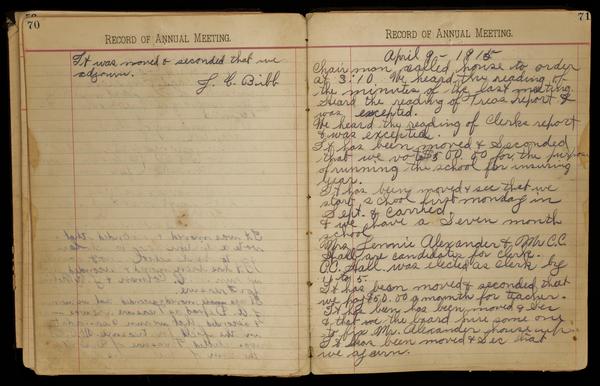 70
RECORD OF ANNUAL MEETING.
It was moved & seconded that we
adjourn.
J. C. Bibb
71
RECORD OF ANNUAL MEETING.
April 9 - 1915
Chairman called house to order
at 3:10. We heard the reading of
the minutes of the last meeting.
Heard the reading of Treas report &
was excepted.
We heard the reading of Clerks report
& was excepted.
It has been moved & Seconded
that we vote $500.00 for the purpose
of running the school for insuring
year.
It has being moved & sec that we
start school first monday in
Sept. & carried
& we have a Seven month
school.
Mrs. Jennie Alexander & Mr C.C.
Hall are candidates for clerk.
C.C. Hall was elected as Clerk by
4 to 5.
It has been moved & seconded that
we pay $50.00 a month for teacher.
It has been has been moved & Sec
& that we the board hire some one
to fix Mr. Alexander house up.
It has been moved & Sec that
we ajourn.